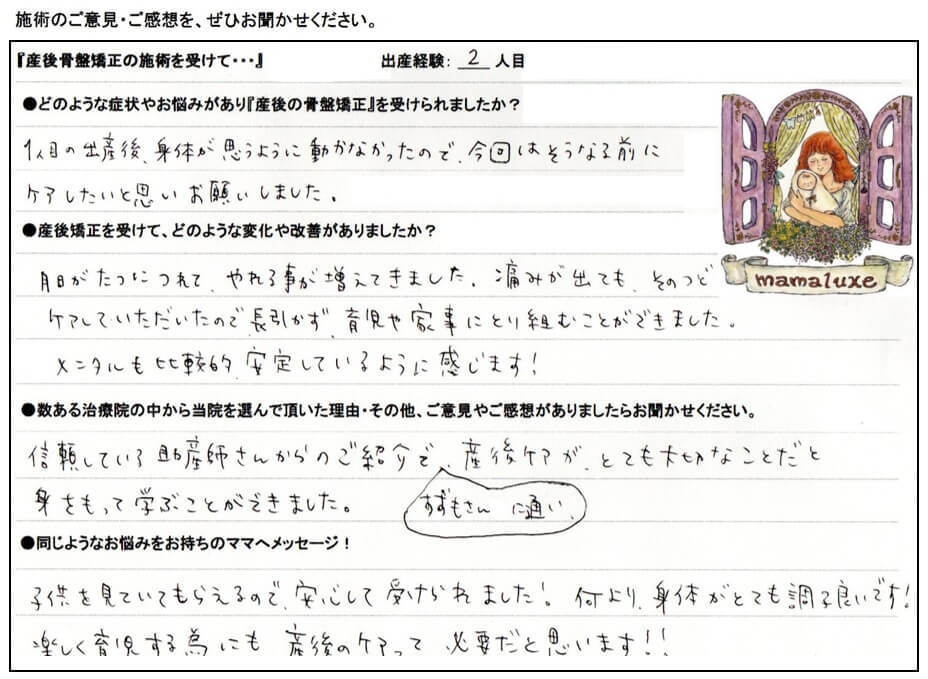 施術のご意見・ご感想を、ぜひお聞かせください。
『産後骨盤矯正の施術を受けて・・・』 出産経験: 2 人目
●どのような症状やお悩みがあり『産後の骨盤矯正』を受けられましたか？
1人目の出産後、身体が思うように動かなかったので、今回はそうなる前に
ケアしたいと思いお願いしました。
●産後矯正を受けて、どのような変化や改善がありましたか？
月日がたつにつれて、やれる事が増えてきました。痛みが出ても、そのつど
ケアしていただいたので長引かず、育児や家事にとり組むことができました。
メンタルも比較的、安定しているように感じます！
mamaluxe
●数ある治療院の中から当院を選んで頂いた理由・その他、ご意見やご感想がありましたらお聞かせください。
信頼している助産師さんからのご紹介で、産後ケアが、とても大切なことだと
身をもって学ぶことができました。
すずもさん に通い、
●同じようなお悩みをお持ちのママへメッセージ！
子供を見ていてもらえるので、安心して受けられました！何より、身体がとても調子良いです！
楽しく育児する為にも 産後のケアって 必要だと思います！！